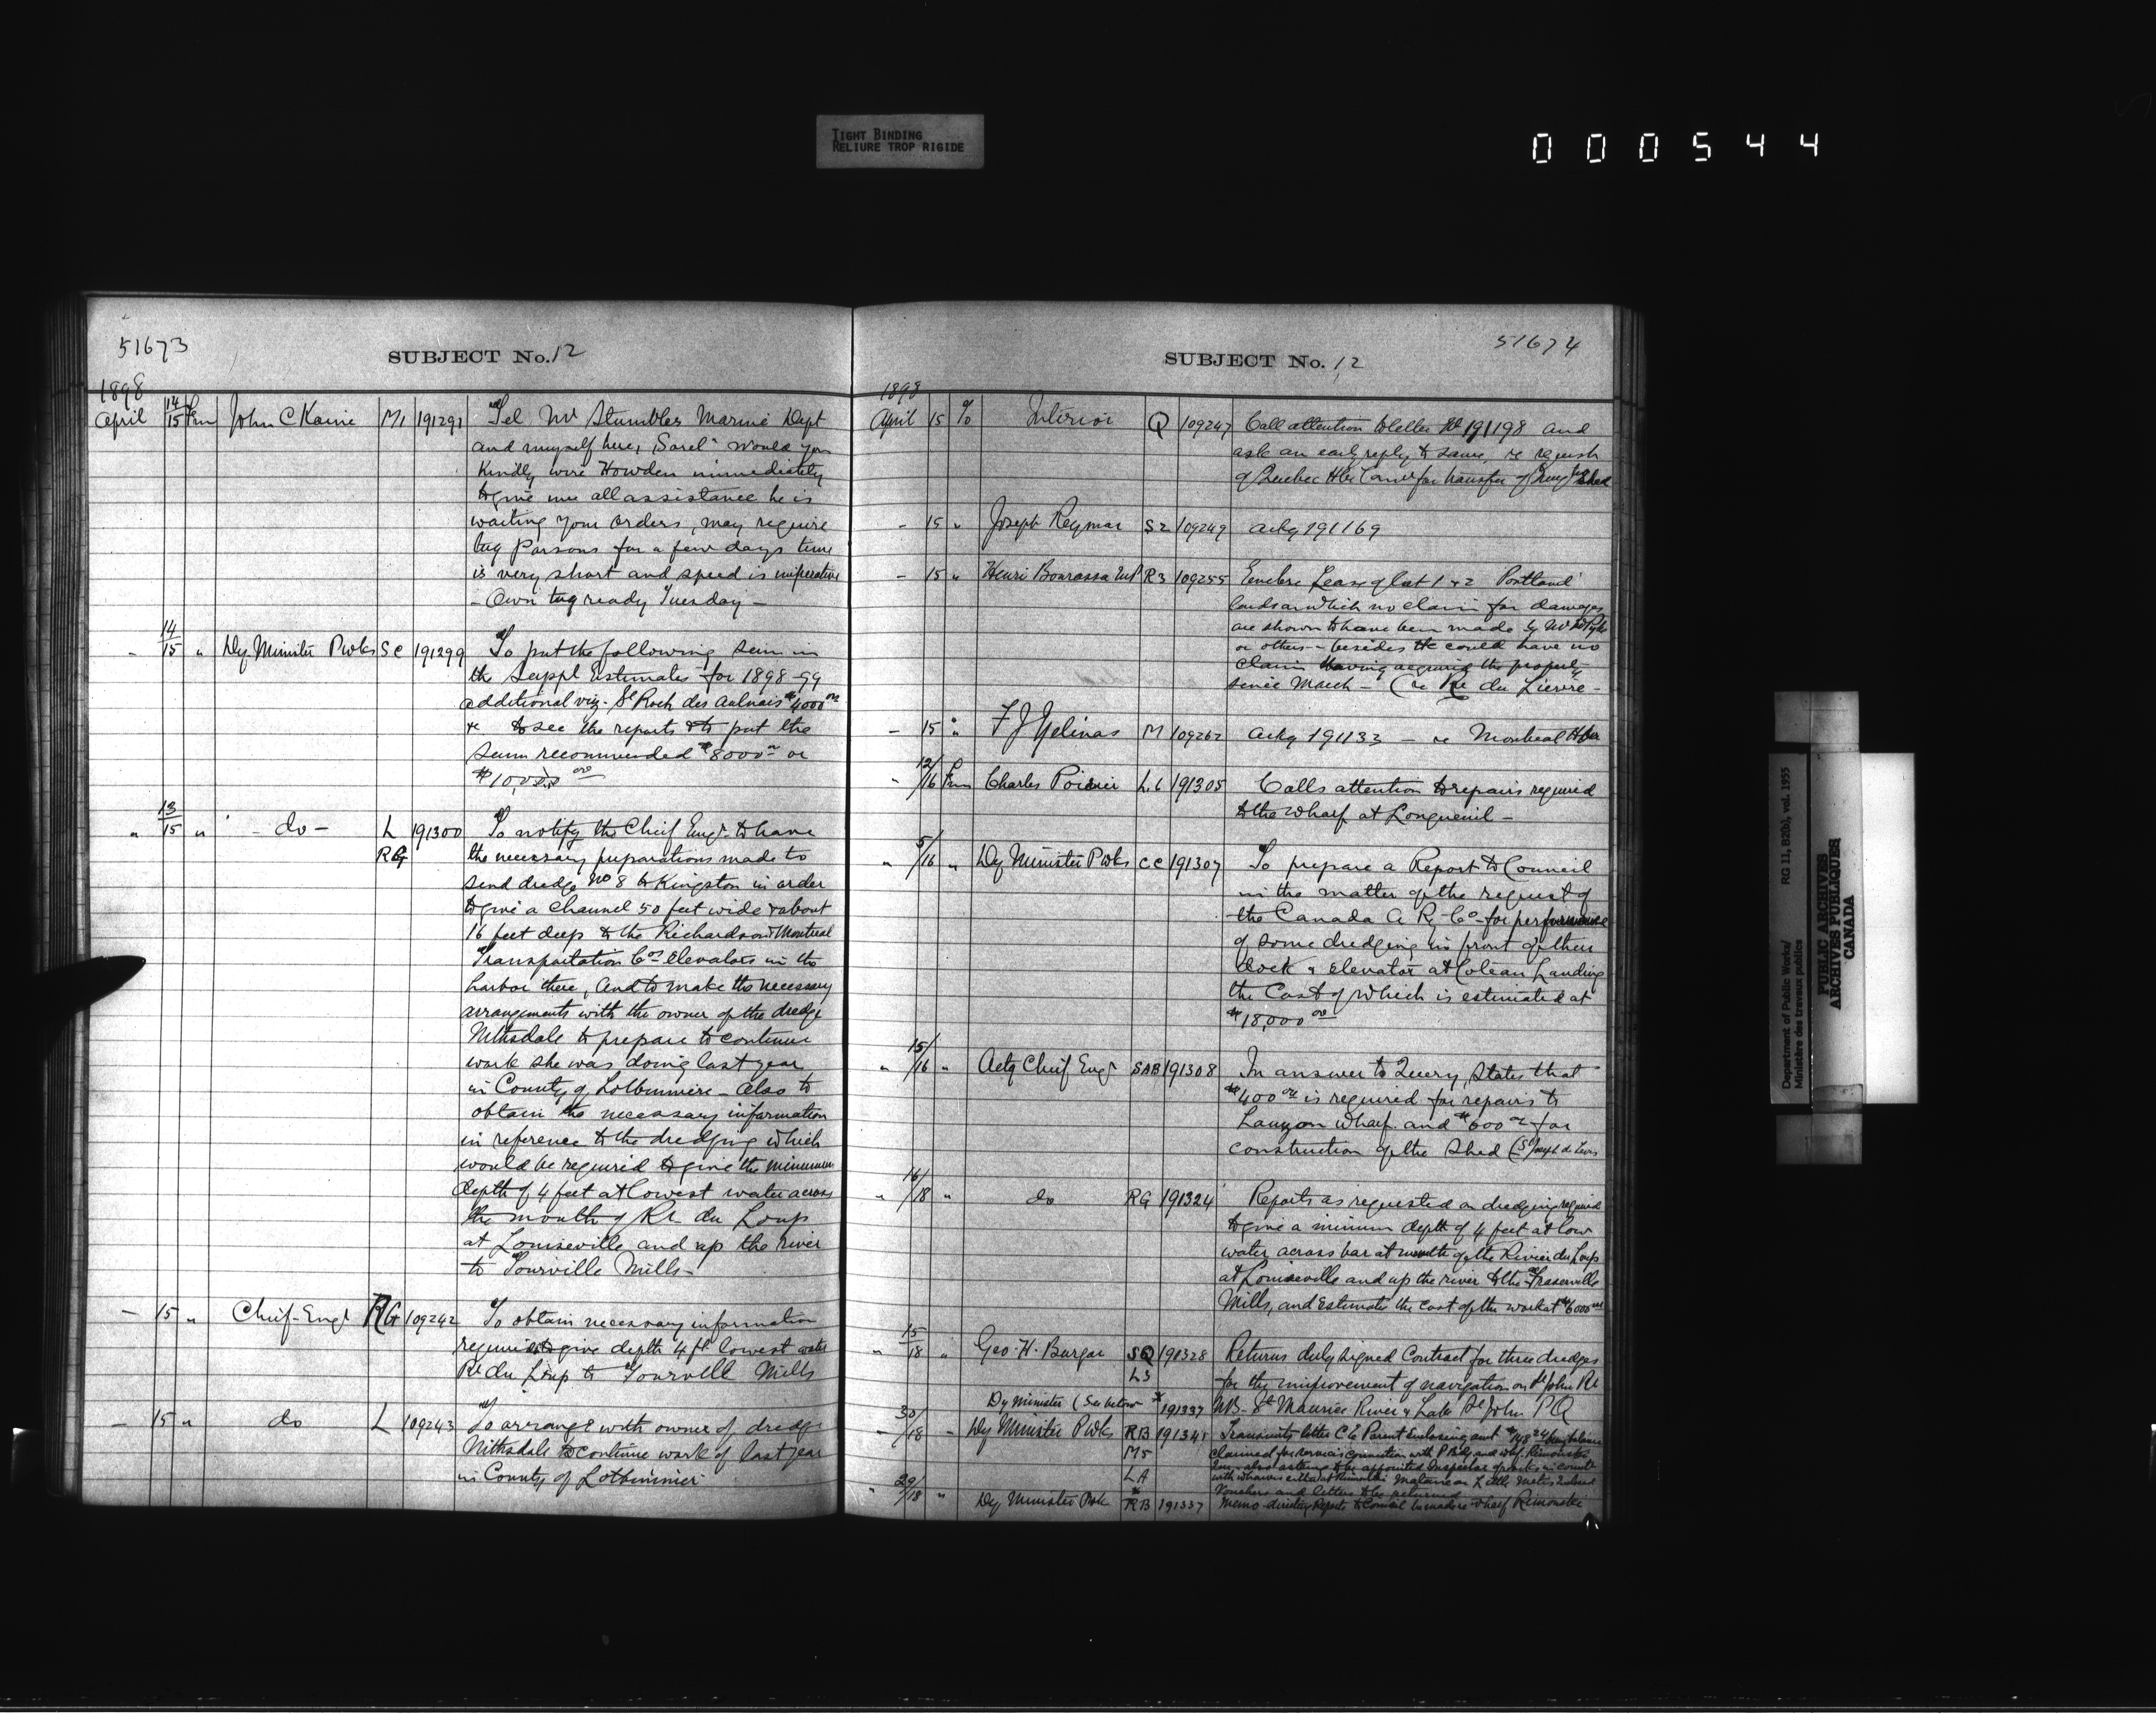 TIGHT BINDING
RELIURE TROP RIGIDE
000544
51673
SUBJECT No. 12
1898
April 14/15 Fm John C Kaine M1 191291 Tel Mr Stumbles Marine Dept
and myself here, Sorel would you
Kindly wire Howden immediately
to give me all assistance he is
waiting your orders, may require
tug Parsons for a few days time
is very short and speed is imperative
- Own tug ready Tuesday -
" 14/15 " Dy Minister P Wks SC 191299 To put the following sum in
the Suppl Estimates for 1898-99
additional viz. St Roch des Aulnais $4000 00
& to see the reports & to put the
sum recommended $8000 00 or
$10,000 00
" 13/15 " - do - L 191300 To notify the Chief Engr to have
RG the necessary preparations made to
send dredge No 8 to Kingston in order
to give a channel 50 feet wide & about
16 feet deep to the Richardson & Montreal
Transportation Cos Elevators in the
harbor there, And to make the necessary
arrangements with the owner of the dredge
Nithsdale to prepare to continue
work she was doing last year
in County of Lotbiniere - Also to
obtain the necessary information
in reference to the dredging which
would be required to give the minimum
depth of 4 feet at lowest water across
the mouth of Rr du Loup
at Louiseville and up the river
to Tourville Mills -
- 15 " Chief Engr RG 109242 To obtain necessary information
required to give depth 4 ft lowest water
Rr du Loup to Tourville Mills
- 15 " do L 109243 To arrange with owner of dredge
Nithsdale to continue work of last year
in County of Lotbiniere
51674
SUBJECT No. 12
1898
April 15 To Interior Q 109247 Call attention to letter No 191198 and
ask an early reply to same, re request
of Quebec Hbr Comrs for transfer of Shed
- 15 " Joseph Reymar S2 109249 ackg 191169
- 15 " Henri Bourassa M P R3 109255 Lease of lot 1 & 2 Portland
lands on which no claim for damages
are shown to have been made by Mr
or others - besides He could have no
claim having acquired the property
since March - (re Rr du Lievre -
- 15 " F J Gelinas M 109262 ackg 191133 - re Montreal Hbr
" 12/16 Fm Charles Poirier L.C 191305 Calls attention to repairs required
to the wharf at Longueuil -
" 5/16 " Dy Minister P Wks CC 191307 To prepare a Report to Council
in the matter of the request of
the Canada A Ry Co for performance
of some dredging in front of their
dock & elevator at Coteau Landing
the Cost of which is estimated at
$18,000 00
" 15/16 " Actg Chief Engr SAB 191308 In answer to Query, States that
$400 00 is required for repairs to
Lauzon Wharf and $600 00 for
construction of the Shed (St Joseph de Levis
" 16/18 " do RG 191324 Reports as requested on dredging required
to give a minimum depth of 4 feet at low
water across bar at mouth of the River du Loup
at Louiseville and up the river to the Fraserville
Mills, and Estimates the cost of the work at $6000 00
" 15/18 " Geo. H. Burgar SQ 191328 Returns duly signed Contract for three dredges
L3 for the improvement of navigation on St John Rr
Dy Minister (See below * 191337 NB - St Maurice River & Lake St John PQ
- 30/18 " Dy Minister P Wks RB 191341 Transmits letter C E Parent Enclosing
M5 claimed for services connection with
LA
Vouchers and letters to be returned
" 29/18 " Dy Minister P Wks * RB 191337 Memo directing Report to Council wharf Rimouski
Department of Public Works/ RG 11, B2(b), vol. 1955
Ministère des travaux publics
PUBLIC ARCHIVES
ARCHIVES PUBLIQUES
CANADA